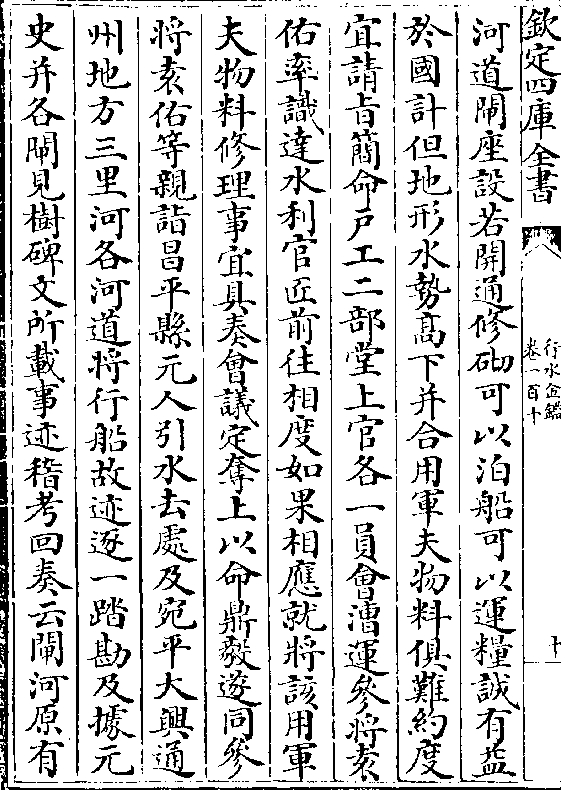 欽定四庫全書
行水金鑑
卷一百十
十
河道閘座設若開通修砌可以泊船可以運糧誠有益
於國計但地形水勢髙下并合用軍夫物料俱難約度
宜請㫖簡命户工二部堂上官各一員會漕運參將袁
佑率識達水利官匠前徃相度如果相應就將該用軍
夫物料修理事宜具奏會議定奪上以命鼎毅遂同參
將袁佑等親詣昌平縣元人引水去處及宛平大興通
州地方三里河各河道將行船故迹逐一踏勘及據元
史并各閘見樹碑文所載事迹稽考回奏云閘河原有